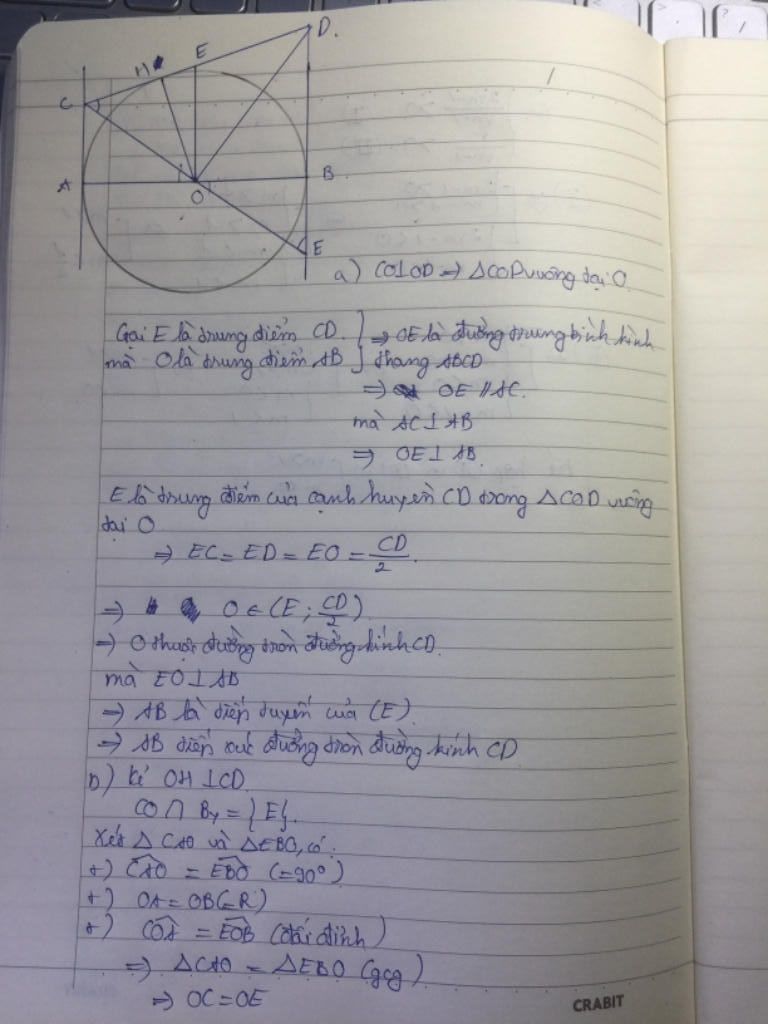 D.
E
H
C
A
B
O
E
a) CO⊥OD => ΔCOD vuông tại O.
Gọi E là trung điểm CD. } => OE là đường trung bình hình
mà O là trung điểm AB } thang ABCD
=> OE // AC.
mà AC⊥AB
=> OE⊥AB.
E là trung điểm của cạnh huyền CD trong ΔCOD vuông
tại O
=> EC = ED = EO = CD/2.
=> O ∈ (E; CD/2)
=> O thuộc đường tròn đường kính CD.
mà EO⊥AB
=> AB là tiếp tuyến của (E).
=> AB tiếp xúc đường tròn đường kính CD
b) kẻ OH⊥CD.
CO ∩ By = {E}.
Xét Δ CAO và ΔEBO, có:
+) CAO = EBO (=90°)
+) OA = OB (=R)
+) COA = EOB (đối đỉnh)
=> ΔCAO = ΔEBO (gcg)
=> OC = OE
CRABIT